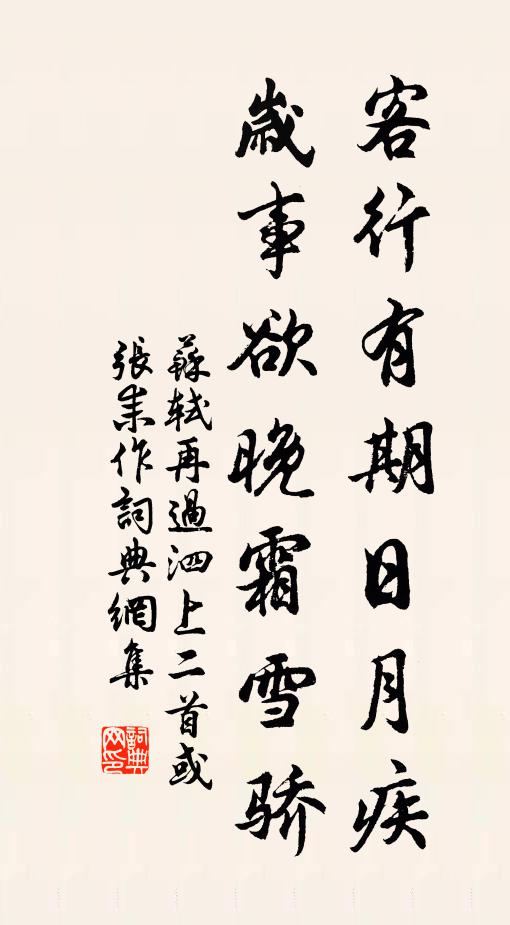 客行有期日月疾
歲事欲晚霜雪骄
蘇軾再過泗上二首或
張耒作詞典網集
詞典
網印